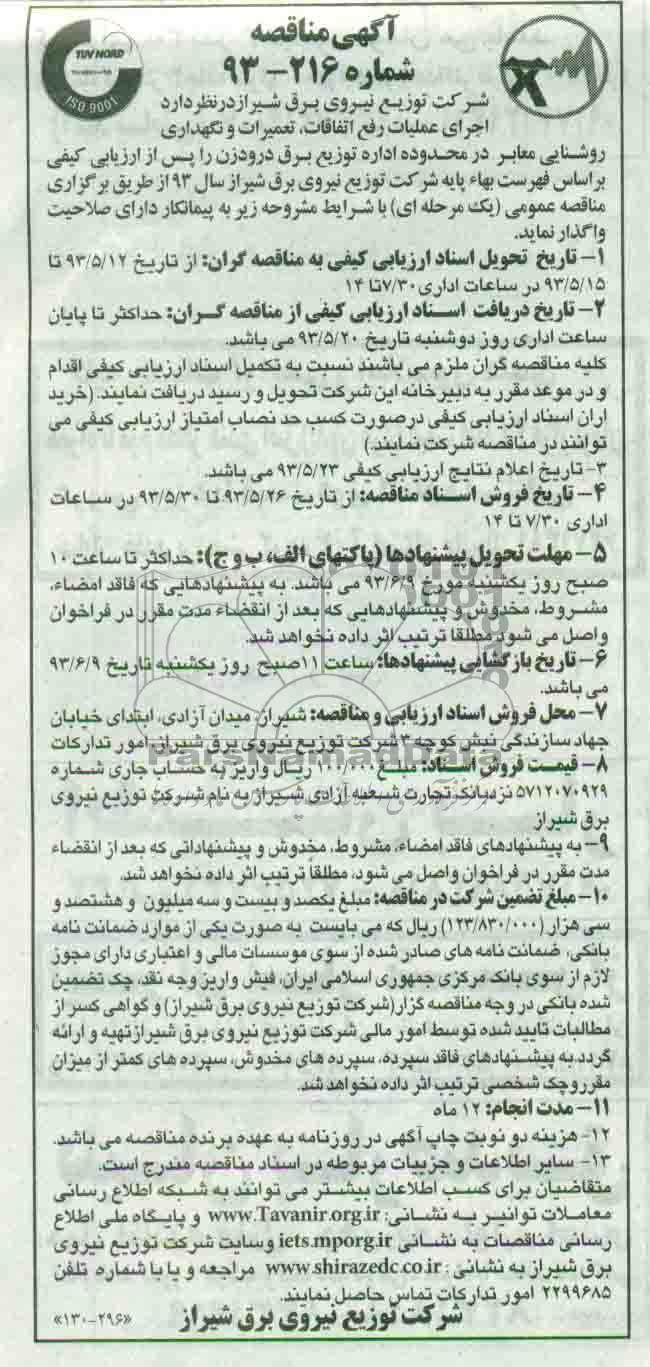 آگهی مناقصه
شماره ۲۱۶- ۹۳
TUV NORD
ISO 9001
شرکت توزیع نیروی برق شیراز در نظر دارد
اجرای عملیات رفع اتفاقات، تعمیرات و نگهداری
روشنایی معابر در محدوده اداره توزیع برق درودزن را پس از ارزیابی کیفی
بر اساس فهرست بهاء پایه شرکت توزیع نیروی برق شیراز سال ۹۳ از طریق برگزاری
مناقصه عمومی (یک مرحله ای) با شرایط مشروحه زیر به پیمانکار دارای صلاحیت
واگذار نماید.
۱- تاریخ تحویل اسناد ارزیابی کیفی به مناقصه گران: از تاریخ ۹۳/۵/۱۲ تا
۹۳/۵/۱۵ در ساعات اداری ۷/۳۰ تا ۱۴
۲- تاریخ دریافت اسناد ارزیابی کیفی از مناقصه گران: حداکثر تا پایان
ساعت اداری روز دوشنبه تاریخ ۹۳/۵/۲۰ می باشد.
کلیه مناقصه گران ملزم می باشند نسبت به تکمیل اسناد ارزیابی کیفی اقدام
و در موعد مقرر به دبیرخانه این شرکت تحویل و رسید دریافت نمایند. (خرید
اران اسناد ارزیابی کیفی درصورت کسب حد نصاب امتیاز ارزیابی کیفی می
توانند در مناقصه شرکت نمایند.)
۳- تاریخ اعلام نتایج ارزیابی کیفی ۹۳/۵/۲۳ می باشد.
۴- تاریخ فروش اسناد مناقصه: از تاریخ ۹۳/۵/۲۶ تا ۹۳/۵/۳۰ در ساعات
اداری ۷/۳۰ تا ۱۴
۵- مهلت تحویل پیشنهادها (پاکتهای الف، ب و ج): حداکثر تا ساعت ۱۰
صبح روز یکشنبه مورخ ۹۳/۶/۹ می باشد. به پیشنهادهایی که فاقد امضاء،
مشروط، مخدوش و پیشنهادهایی که بعد از انقضاء مدت مقرر در فراخوان
واصل می شود مطلقا ترتیب اثر داده نخواهد شد.
۶- تاریخ بازگشایی پیشنهادها: ساعت ۱۱صبح روز یکشنبه تاریخ ۹۳/۶/۹
می باشد.
۷- محل فروش اسناد ارزیابی و مناقصه: شیراز، میدان آزادی، ابتدای خیابان
جهاد سازندگی نبش کوچه ۳ شرکت توزیع نیروی برق شیراز، امور تدارکات
ParsNamadData
۸- قیمت فروش اسناد: مبلغ ۱۰۰/۰۰۰ ریال واریز به حساب جاری شماره
۵۷۱۲۰۷۰۹۲۹ نزد بانک تجارت شعبه آزادی شیراز به نام شرکت توزیع نیروی
برق شیراز
۹- به پیشنهادهای فاقد امضاء، مشروط، مخدوش و پیشنهاداتی که بعد از انقضاء
مدت مقرر در فراخوان واصل می شود، مطلقاً ترتیب اثر داده نخواهد شد.
۱۰- مبلغ تضمین شرکت در مناقصه: مبلغ یکصد و بیست و سه میلیون و هشتصد و
سی هزار (۱۲۳/۸۳۰/۰۰۰) ریال که می بایست به صورت یکی از موارد ضمانت نامه
بانکی، ضمانت نامه های صادر شده از سوی موسسات مالی و اعتباری دارای مجوز
لازم از سوی بانک مرکزی جمهوری اسلامی ایران، فیش واریز وجه نقد، چک تضمین
شده بانکی در وجه مناقصه گزار(شرکت توزیع نیروی برق شیراز) و گواهی کسر از
مطالبات تایید شده توسط امور مالی شرکت توزیع نیروی برق شیراز تهیه و ارائه
گردد. به پیشنهادهای فاقد سپرده، سپرده های مخدوش، سپرده های کمتر از میزان
مقرر و چک شخصی ترتیب اثر داده نخواهد شد.
۱۱- مدت انجام: ۱۲ ماه
۱۲- هزینه دو نوبت چاپ آگهی در روزنامه به عهده برنده مناقصه می باشد.
۱۳- سایر اطلاعات و جزییات مربوطه در اسناد مناقصه مندرج است.
متقاضیان برای کسب اطلاعات بیشتر می توانند به شبکه اطلاع رسانی
معاملات توانیر به نشانی: www.Tavanir.org.ir و پایگاه ملی اطلاع
رسانی مناقصات به نشانی iets.mporg.ir وسایت شرکت توزیع نیروی
برق شیراز به نشانی: www.shirazedc.co.ir مراجعه و یا با شماره تلفن
۲۲۹۹۶۸۵ امور تدارکات تماس حاصل نمایند.
شرکت توزیع نیروی برق شیراز
«۱۳۰-۲۹۶»